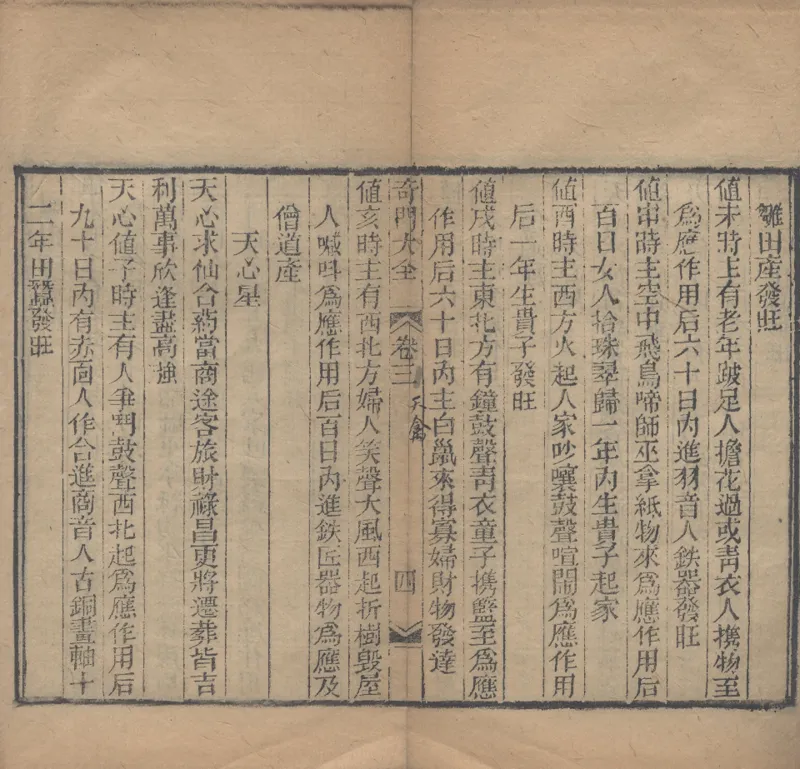 雛田產發旺
值未時上有老年跛足人擔花過或靑衣人擕物至
爲應作用后六十日內進羽音人鉄器發旺
值申時主空中飛鳥啼師巫拿紙物來爲應作用后
百日女人拾珠翠歸一年內生貴子起家
值酉時主西方火起人家吵嚷鼓聲喧鬧爲應作用
后一年生貴子發旺
值戌時主東北方有鐘鼓聲靑衣童子携籃至爲應
作用后六十日內主白鼠來得寡婦財物發達
奇門大全
卷三
天禽
四
值亥時主有西北方婦人笑聲大風西起折樹毀屋
人喊呌爲應作用后百日內進鉄匠器物爲應及
僧道產
天心星
天心求仙合葯當商途客旅財祿昌更將遷葬皆吉
利萬事欣逢盡高強
天心值子時主有人爭鬥鼓聲西北起爲應作用后
九十日內有赤面人作合進商音人古銅畫軸十
二年田蠶發旺